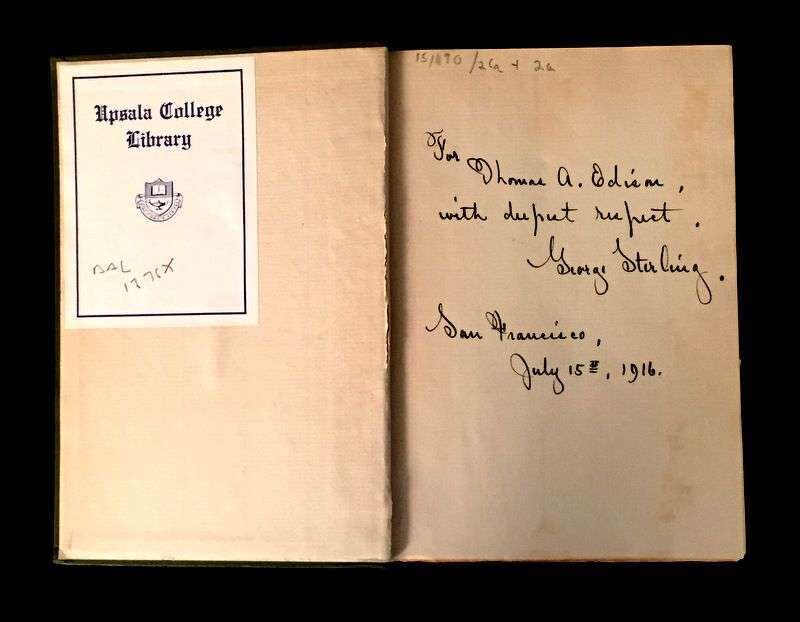 Upsala College
Library
BAL
1276X
15/890 /26a + 2a
For
Thomas A. Edison,
with deepest respect.
George Sterling.
San Francisco,
July 15th, 1916.